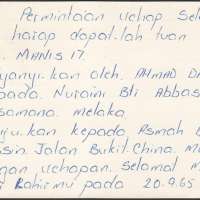 Permintaan Uchap Sela
harap dapat-lah tuan
MANIS 17.
nyanyi.kan oleh. AHMAD DA
pada. Nuraini Bti Abbas
samana. Melaka.
tuju.kan kepada, Asmah B
ssin Jalan Bukit.China. M
ngan uchapan. Selamat m
Lahirmu pada 20.9.65